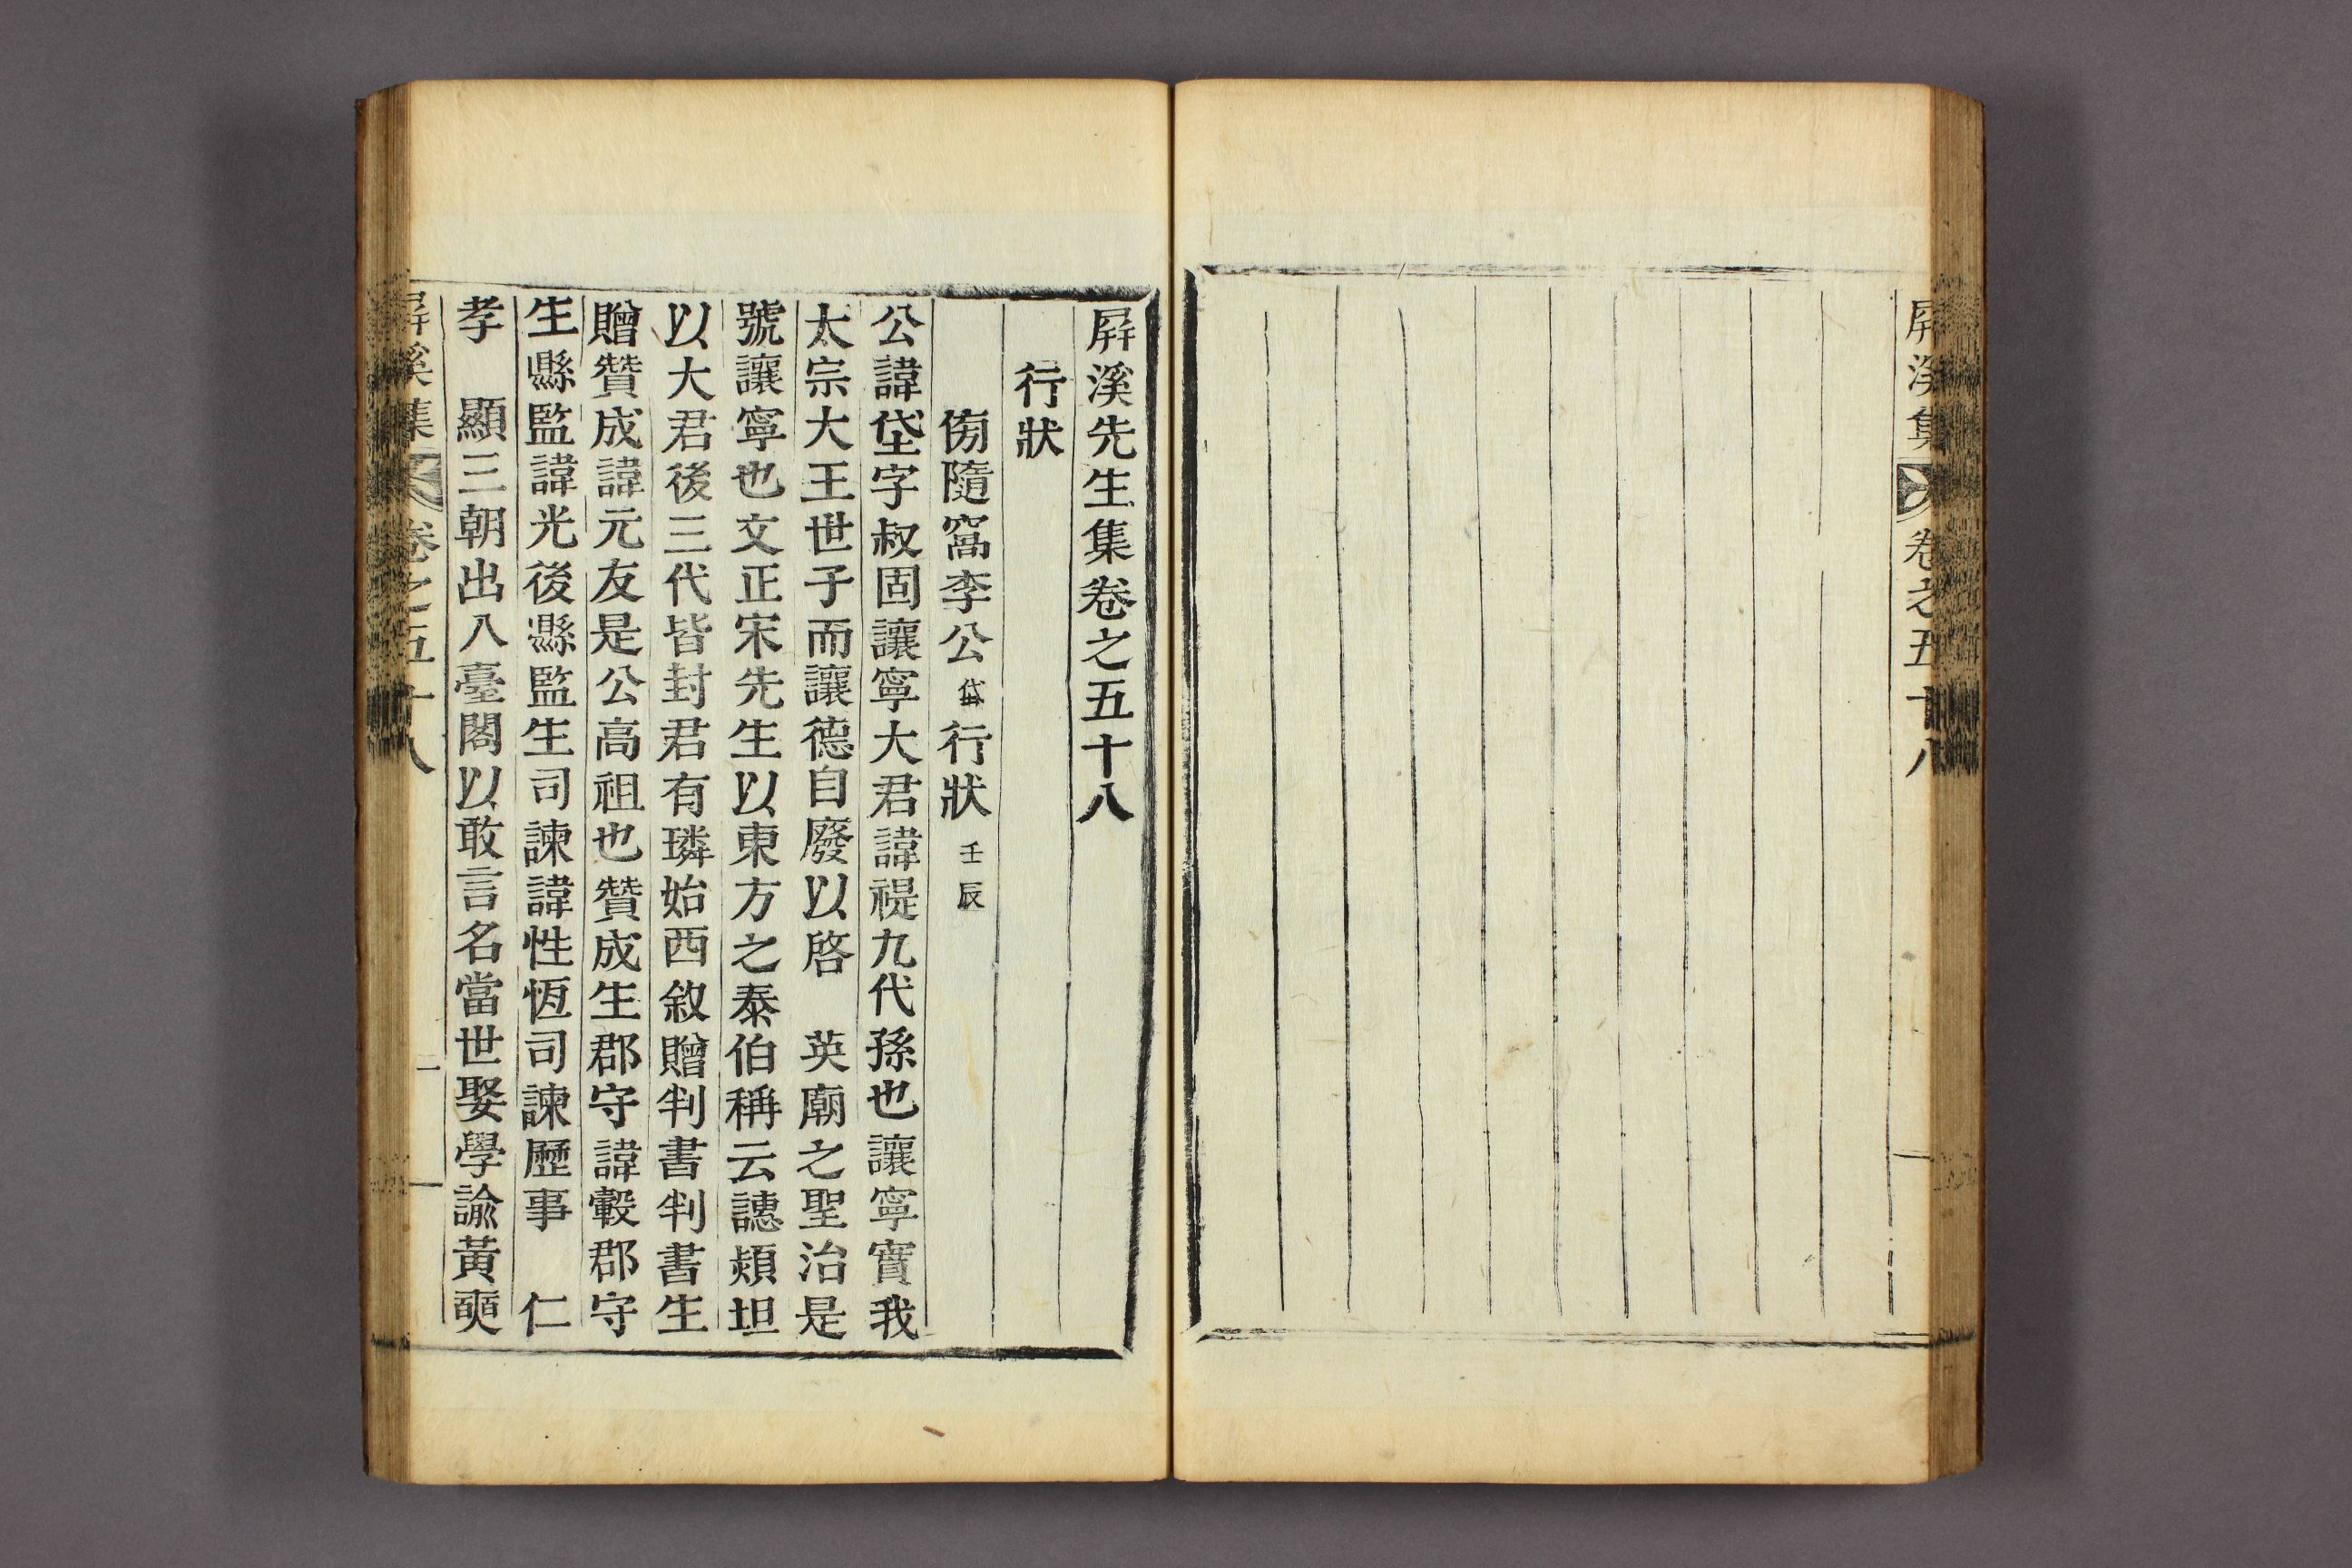 屛溪集 卷之五十八
屛溪先生集卷之五十八
行狀
傍隨窩李公垈行狀 壬辰
公諱垈字叔固讓寧大君諱禔九代孫也讓寧實我
太宗大王世子而讓德自廢以啓 英廟之聖治是
號讓寧也文正宋先生以東方之泰伯稱云譓熲坦
以大君後三代皆封君有璘始西敘贈判書判書生
贈贊成諱元友是公高祖也贊成生郡守諱轂郡守
生縣監諱光後縣監生司諫諱性恆司諫歷事 仁
孝 顯三朝出入臺閣以敢言名當世娶學諭黃奭
屛溪集 卷之五十八 一